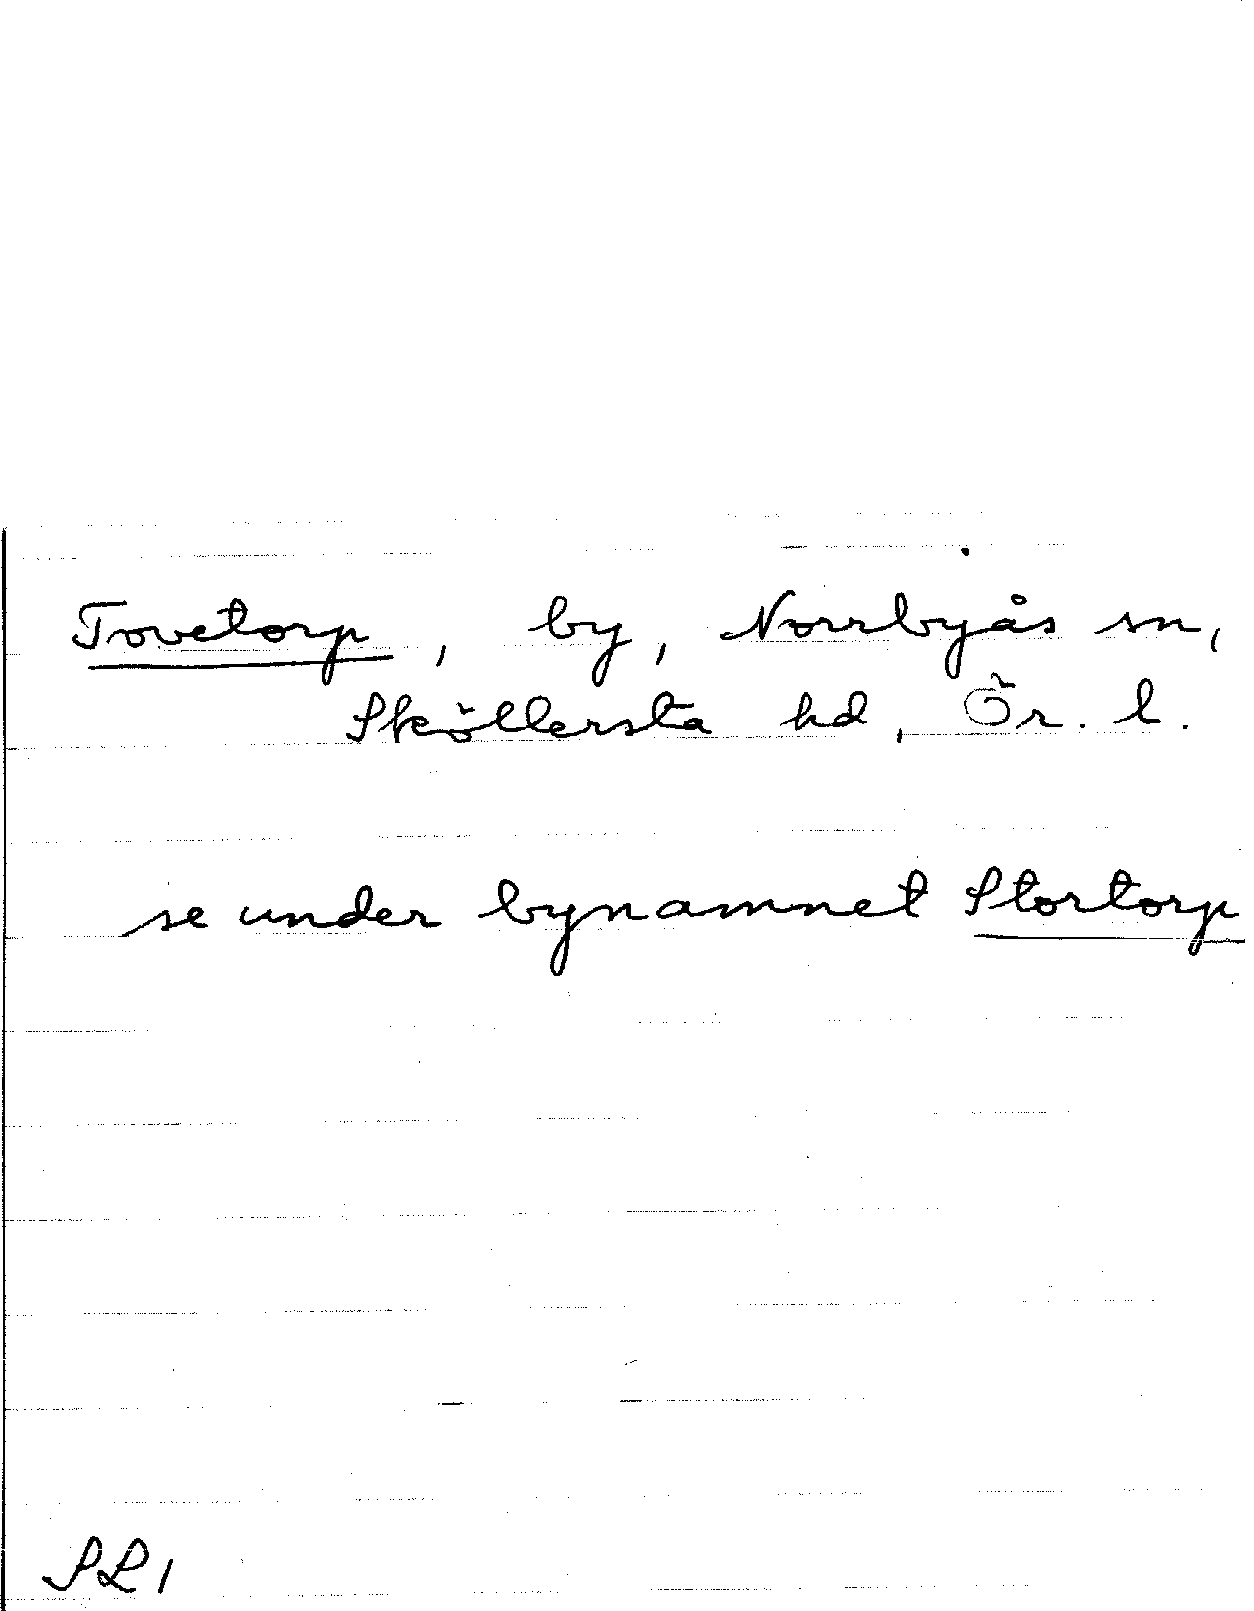 Tovetorp, by, Norrbyås sn,
Sköllersta hd, Ör. l.
se under bynamnet Stortorp
SL1